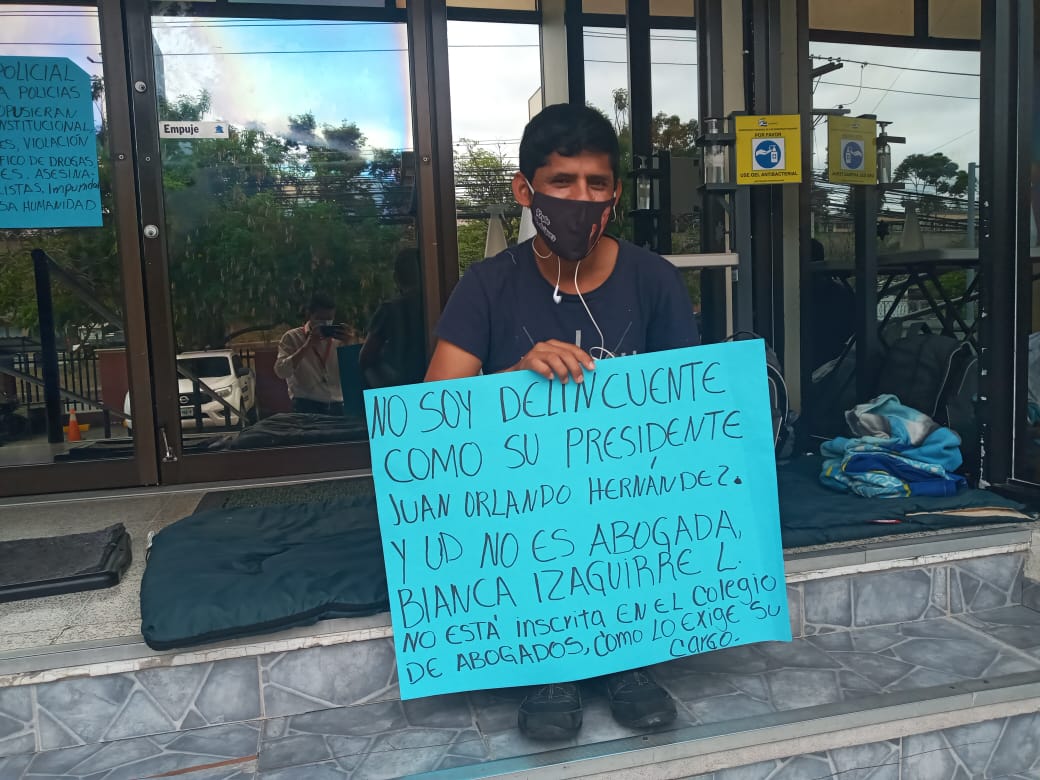 POLICIAL
A POLICIAS
OPUSIERAN
NSTITUCIONAL
ES, VIOLACIÓN
FICO DE DROGAS
ES. ASESINA-
LISTAS, Impunidad
SA HUMANIDAD
Empuje
POR FAVOR
USE GEL ANTIBACTERIAL
NO SOY DELINCUENTE
COMO SU PRESIDENTE
JUAN ORLANDO HERNÁNDEZ.
Y UD NO ES ABOGADA,
BIANCA IZAGUIRRE L.
NO ESTÁ INSCRITA EN EL COLEGIO
DE ABOGADOS, COMO LO EXIGE SU
CARGO.-